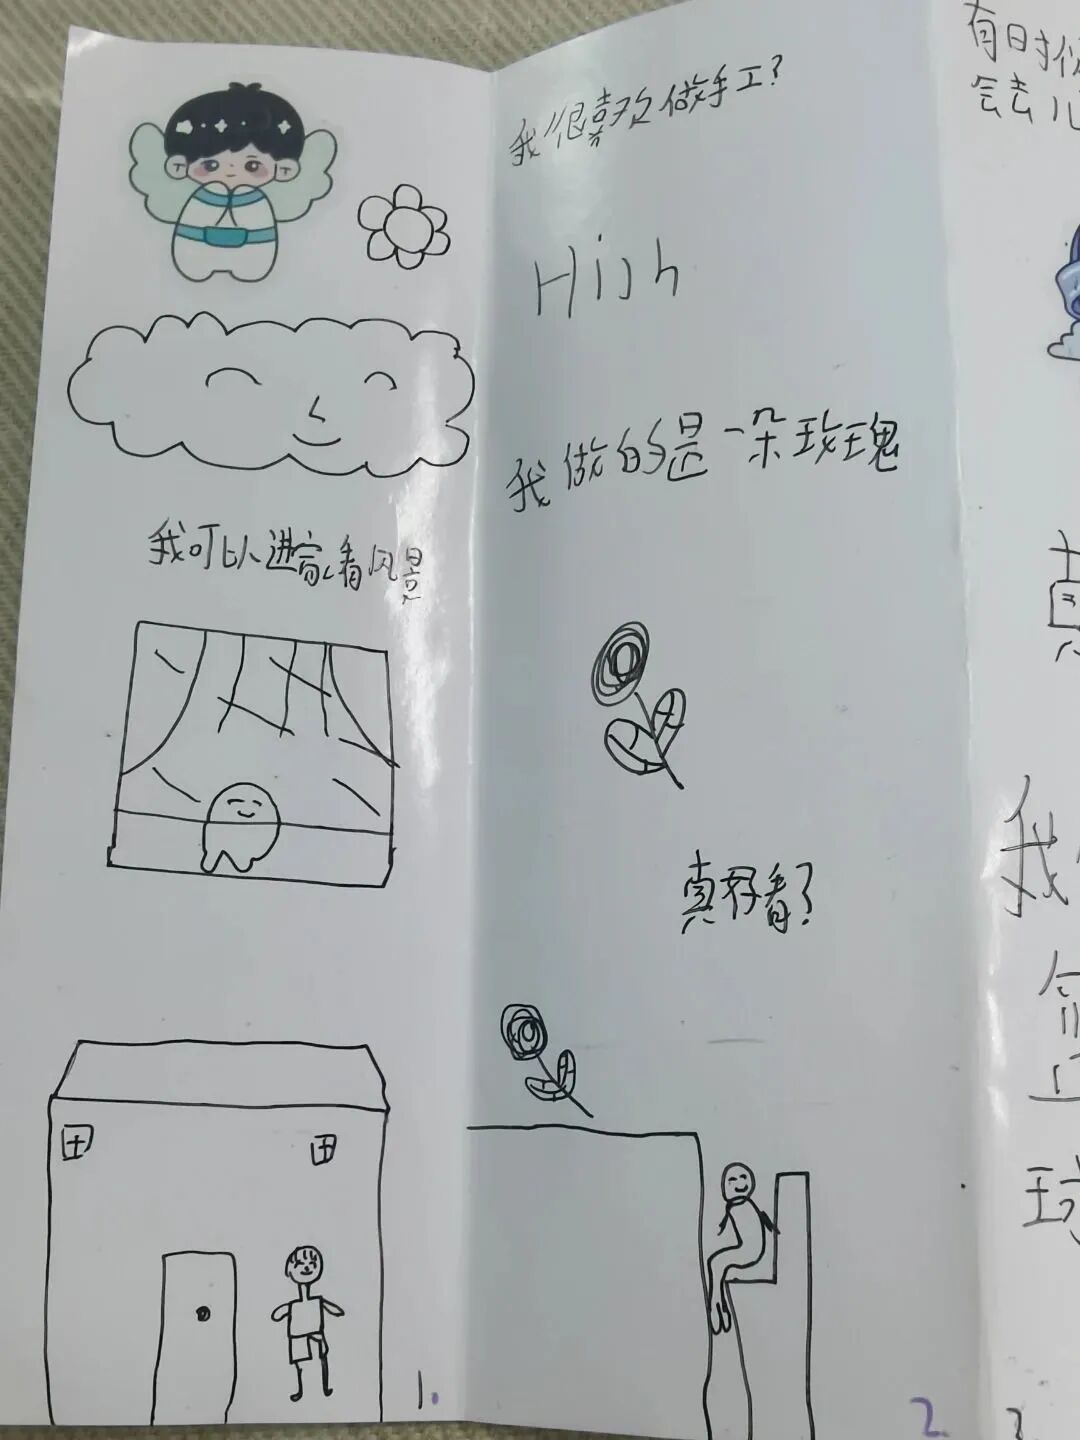 我可以进窗看风景
1.
我很喜欢做手工?
我做的是一朵玫瑰
真好看?
2.
有时
会去儿
我
3.